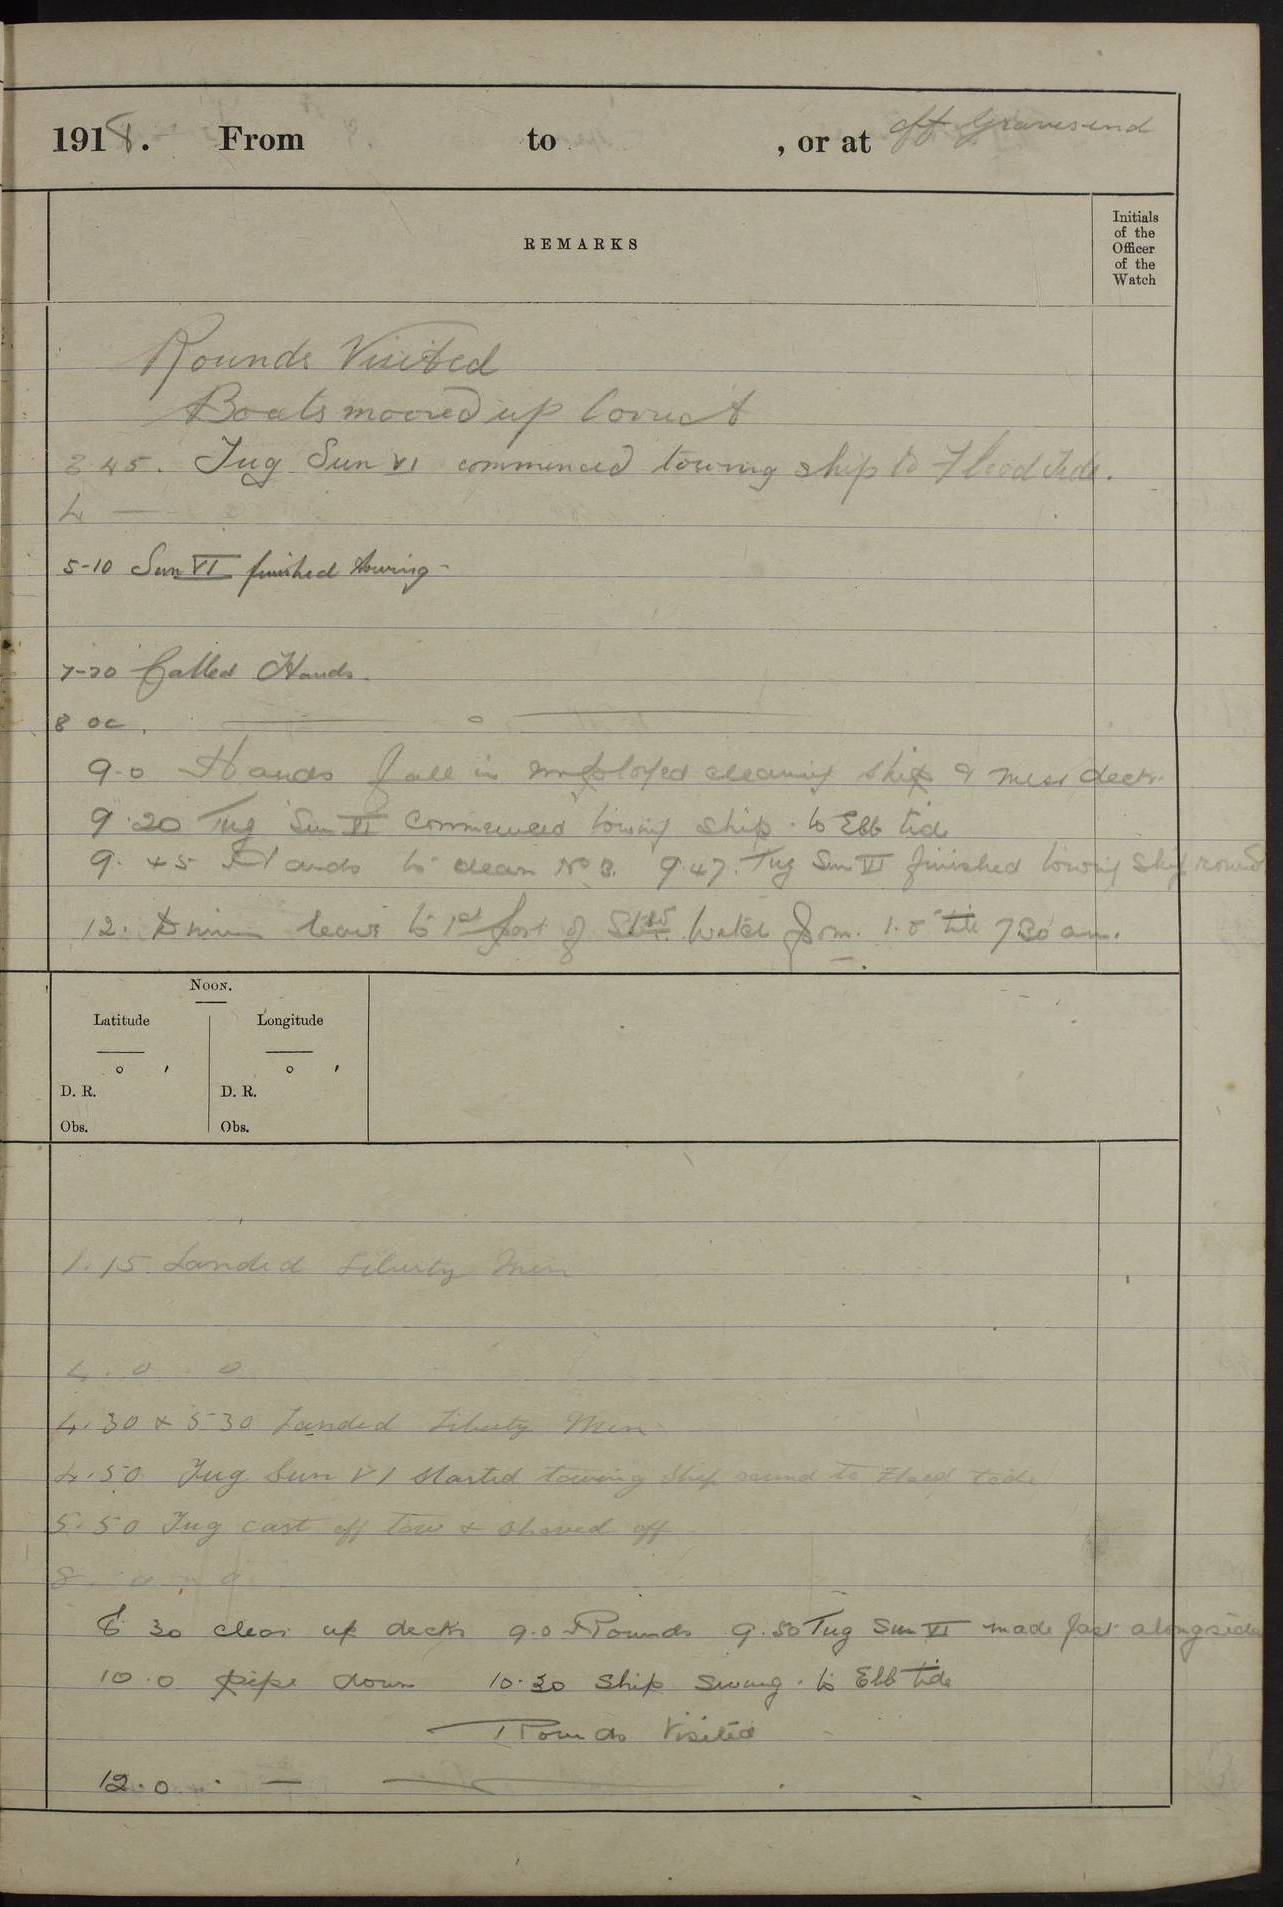 1918. From to , or at off Gravesend
REMARKS
Initials
of the
Officer
of the
Watch
Rounds Visited
Boats moored up Correct
3 45. Tug Sun VI commenced towing ship to Flood Tide.
4 —
5-10 Sun VI finished towing -
7-20 Called Hands.
8 oc.
9.0 Hands fall in employed cleaning ship & mess decks.
9.20 Tug Sun VI commenced towing ship. to Ebb tide
9.45 Hands to clean No 3. 9.47. Tug Sun VI finished towing ship round
12. leave to 1st part of Watch from. 1.0 till 730 am.
Noon.
Latitude Longitude
° ′ ° ′
D. R. D. R.
Obs. Obs.
1.15 Landed Liberty Men
4. 0 . 0
4.30 & 5 30 Landed Liberty Men
4.50 Tug Sun VI started towing ship round to Flood tide
5.50 Tug cast off tow & shoved off
8. 0 0
8 30 clear up decks 9.0 Rounds 9.50 Tug Sun VI made fast alongside
10.0 pipe down 10.30 ship swung. to Ebb tide
Rounds Visited
12.0 . —